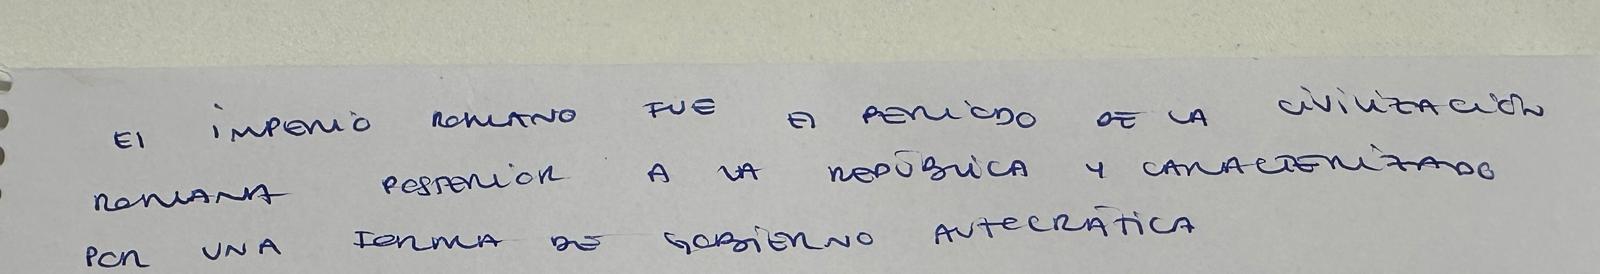 El imperio romano fue el periodo de la civilización
romana posterior a la república y caracterizado
por una forma de gobierno autocrática